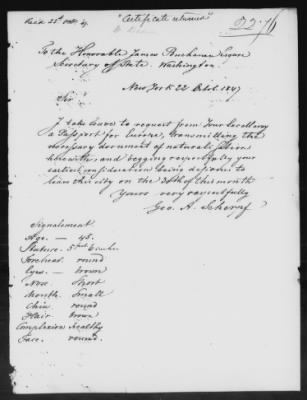 "Certificate returned"
2276
To the Honorable James Buchanan Esquire
Secretary of State. Washington.
New York 22 Octob. 1847
Sir
I take leave to request from Your Excellency
a Passport for Europe, transmitting the
necessary document of naturalization
herewith and begging respectfully your
earliest consideration being desirous to
leave this city on the 30th of this month
Yours very respectfully
Geo. A. Scherpf
Signalement
Age. — 45.
Stature. 5 feet
Forehead. round
Eyes. — brown
Nose short
Mouth. small
Chin. round
Hair brown
Complexion healthy
Face. round.